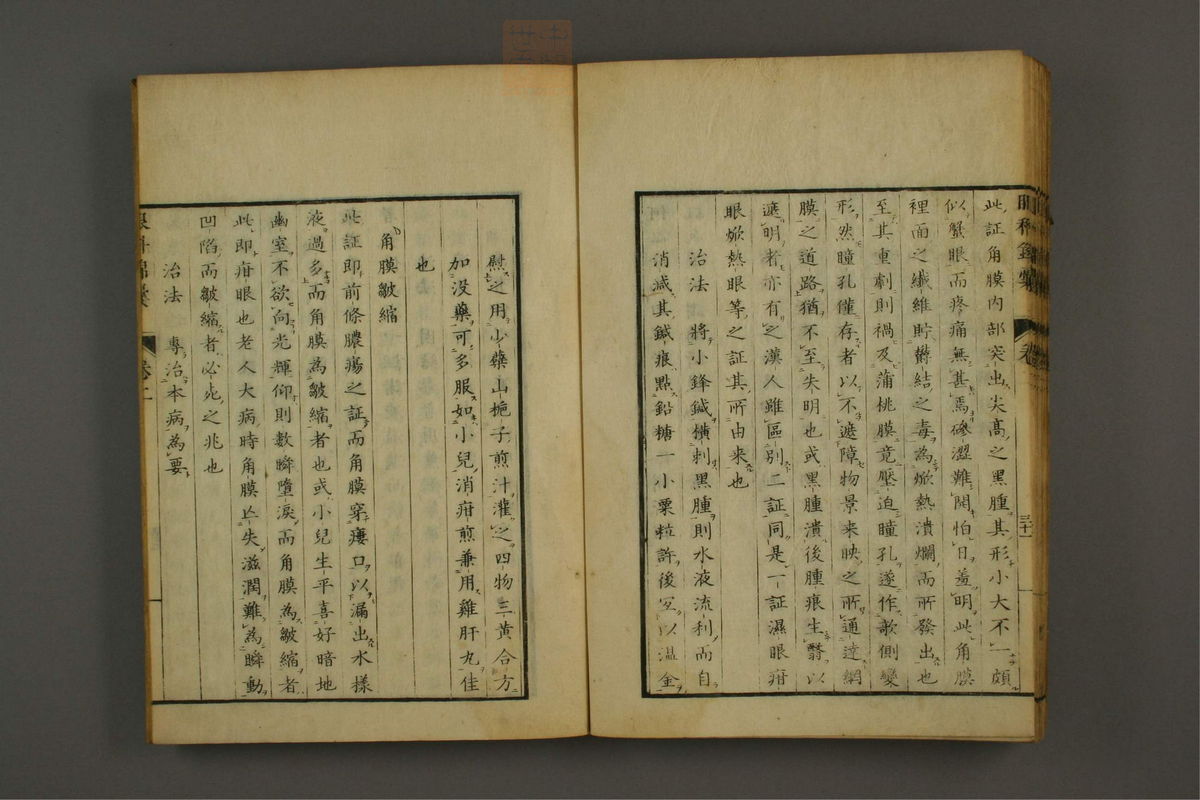 此証角膜內部突出尖高之黑腫其形小大不一頗
似蟹眼而疼痛無甚焉磣澀難開怕日羞明此角膜
裡面之纖維貯欝結之毒為焮熱潰爛而所發出也
至其重劇則禍及蒲桃膜竟壓迫瞳孔遂作欹側變
形然瞳孔僅存者以不遮障物景来映之所通達網
膜之道路猶不至失明也或黑腫潰後腫痕生翳以
遮明者亦有之漢人雖區別二証同是一証濕眼疳
眼焮熱眼等之証其所由来也
治法 將小鋒鍼横刺黑腫則水液流利而自
消減其鍼痕點鉛糖一小粟粒許後宜以温金
慰之用少蘗山梔子煎汁灌之四物三黄合方
加没藥可多服如小兒消疳煎兼用雞肝丸佳
也
角膜皺縮
此証即前條膿瘍之証而角膜穿瘻口以漏出水様
液過多而角膜為皺縮者也或小兒生平喜好暗地
幽室不欲向光輝仰則數瞬墮淚而角膜為皺縮者
此即疳眼也老人大病時角膜亡失滋潤難為瞬動
凹陷而皺縮者必死之兆也
治法 專治本病為要
眼科錦嚢 卷二